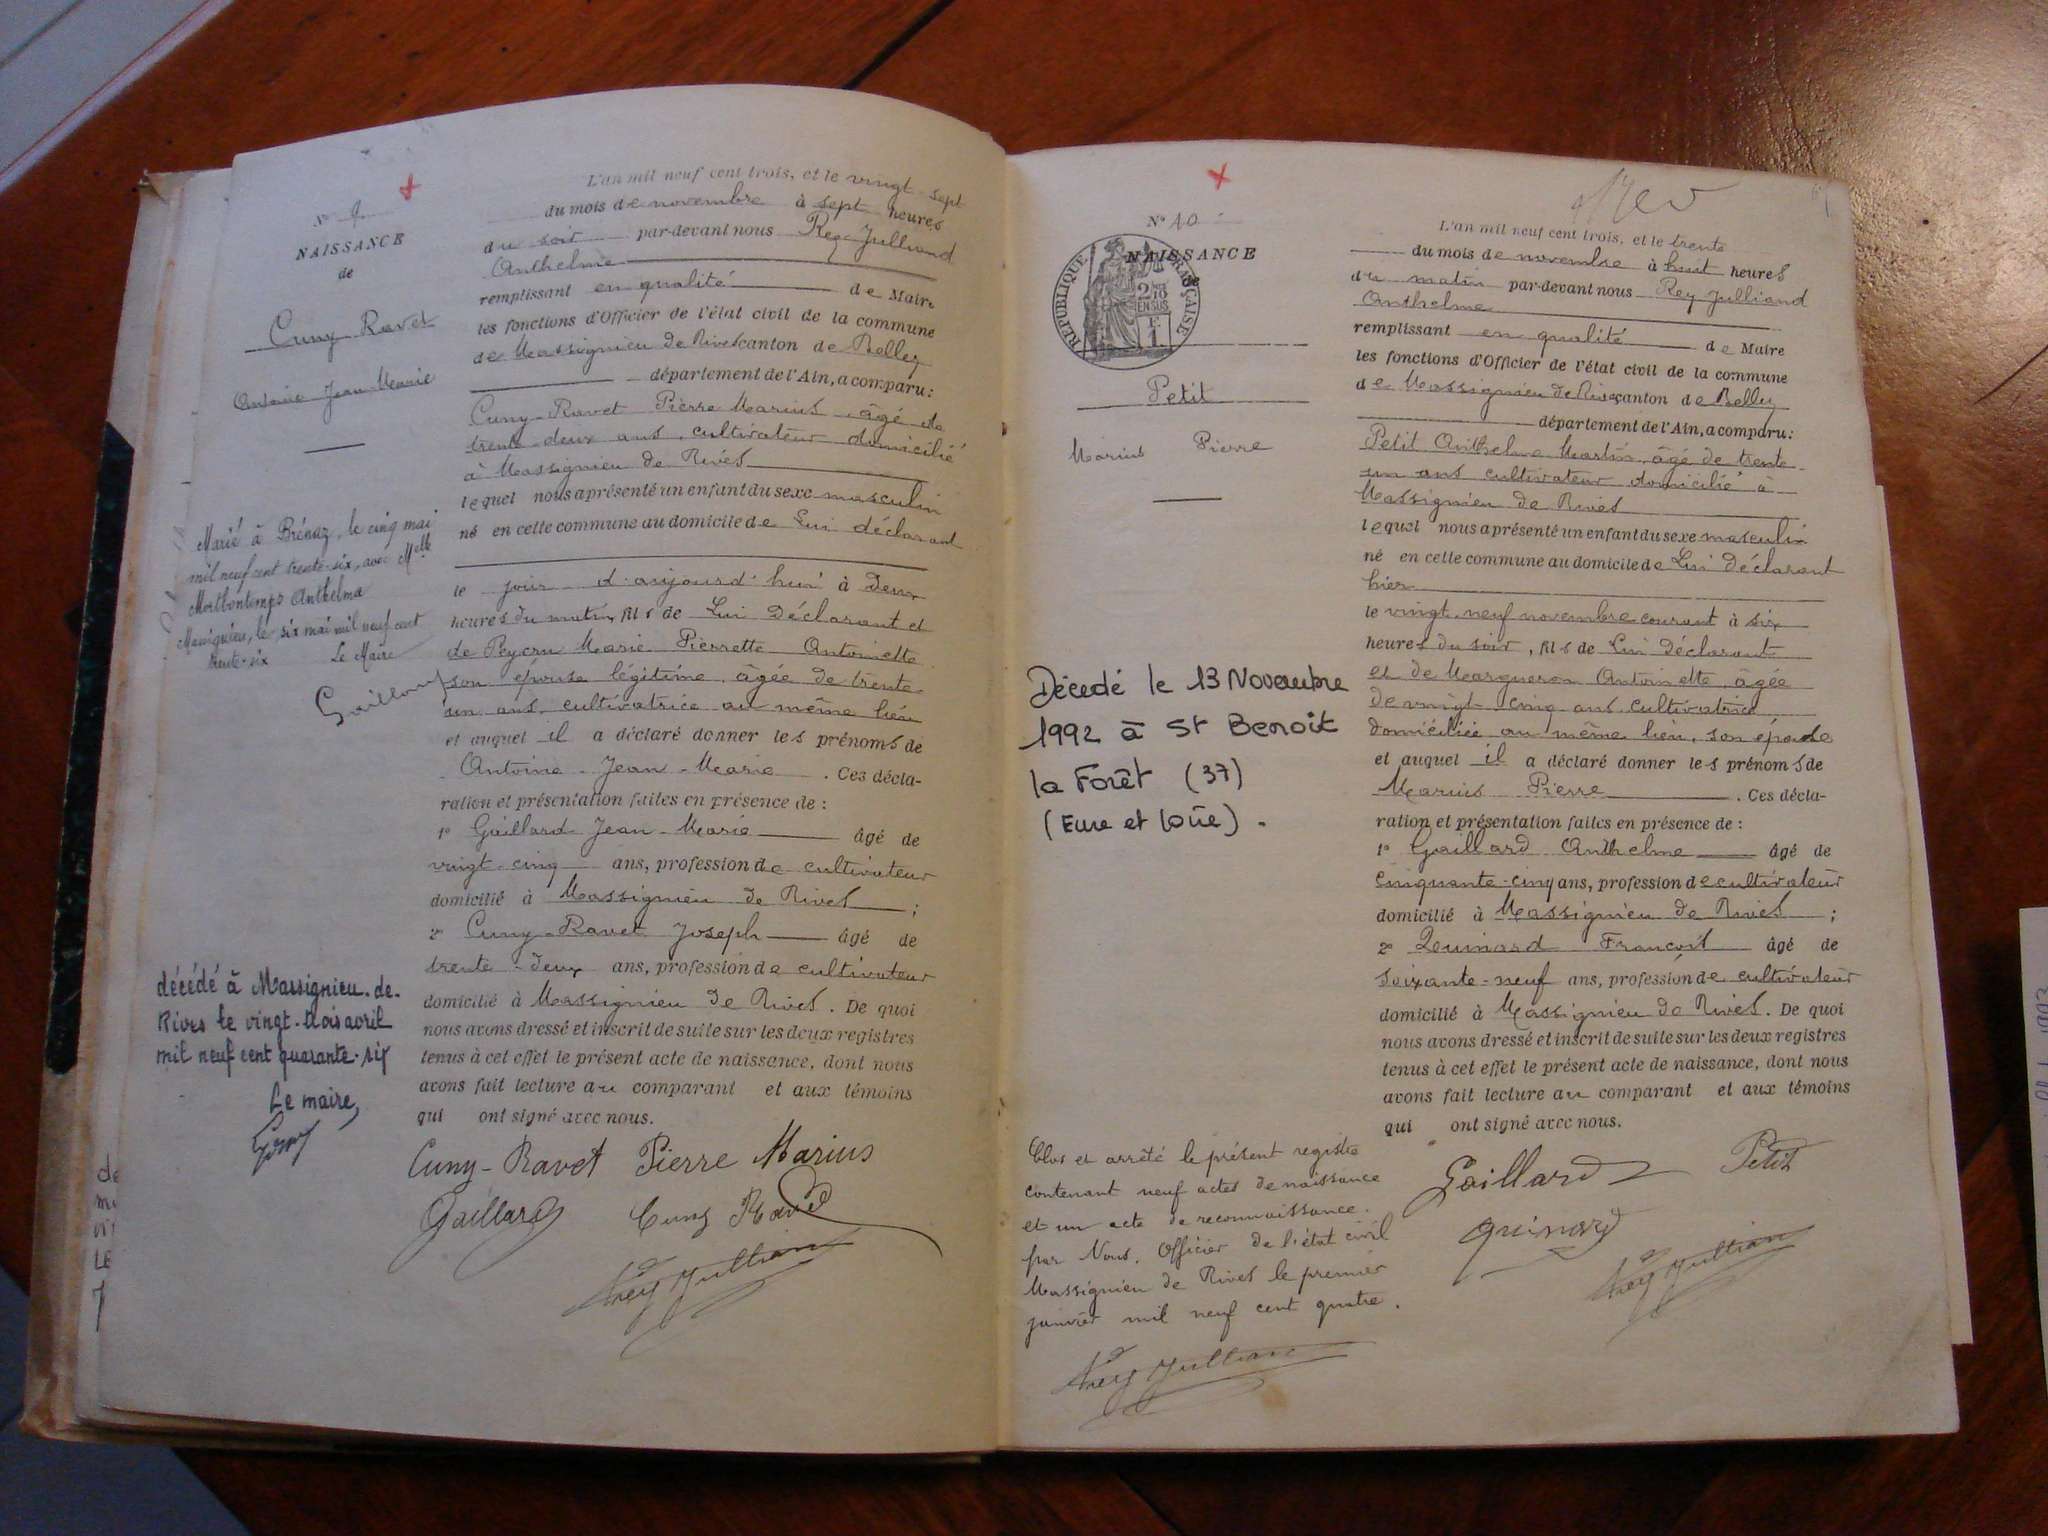 N° 9
NAISSANCE
de
Cuny Ravet
Antoine Jean Marie
Marié à Brénaz, le cinq mai
mil neuf cent trente-six, avec Melle
Anthelma
Massignieu, le six mai mil neuf cent
trente-six Le Maire
Gaillard
décédé à Massignieu-de-
Rives le vingt-trois avril
mil neuf cent quarante-six
Le maire,
L'an mil neuf cent trois, et le vingt-sept
du mois de novembre à sept heures
du soir par-devant nous Rey-Julliand
Anthelme
remplissant en qualité de Maire
les fonctions d'Officier de l'état civil de la commune
de Massignieu de Rives canton de Belley
département de l'Ain, a comparu:
Cuny-Ravet Pierre Marius âgé de
trente-deux ans, cultivateur domicilié
à Massignieu de Rives
lequel nous a présenté un enfant du sexe masculin
né en cette commune au domicile de Lui déclarant
le jour d'aujourd'hui à deux
heures du matin, fils de Lui Déclarant et
de Peycru Marie Pierrette Antoinette
son épouse légitime, âgée de trente-
un ans, cultivatrice au même lieu
et auquel il a déclaré donner les prénoms de
Antoine-Jean-Marie. Ces décla-
ration et présentation faites en présence de:
1° Gaillard Jean-Marie âgé de
vingt-cinq ans, profession de cultivateur
domicilié à Massignieu de Rives;
2° Cuny-Ravet Joseph âgé de
trente-deux ans, profession de cultivateur
domicilié à Massignieu de Rives. De quoi
nous avons dressé et inscrit de suite sur les deux registres
tenus à cet effet le présent acte de naissance, dont nous
avons fait lecture au comparant et aux témoins
qui ont signé avec nous.
Cuny-Ravet Pierre Marius
Gaillard Cuny Ravet
Rey Jullian
N° 10
NAISSANCE
RÉPUBLIQUE FRANÇAISE
2/10 EN SUS
Petit
Marius Pierre
Décedé le 13 Novembre
1992 à St Benoit
la Forêt (37)
(Eure et Loire).
Clos et arrêté le présent registre
contenant neuf actes de naissance
et un acte de reconnaissance.
par Nous, Officier de l'état civil
Massignieu de Rives le premier
janvier mil neuf cent quatre.
Rey Jullian
L'an mil neuf cent trois, et le trente
du mois de novembre à huit heures
du matin par-devant nous Rey Julliand
Anthelme
remplissant en qualité de Maire
les fonctions d'Officier de l'état civil de la commune
de Massignieu de Rives canton de Belley
département de l'Ain, a comparu:
Petit Anthelme Martin, âgé de trente-
un ans cultivateur domicilié à
Massignieu de Rives
lequel nous a présenté un enfant du sexe masculin
né en cette commune au domicile de Lui Déclarant
hier
le vingt-neuf novembre courant à six
heures du soir, fils de Lui Déclarant
et de Margueron Antoinette, âgée
de vingt cinq ans, cultivatrice
domiciliée au même lieu, son épouse
et auquel il a déclaré donner les prénoms de
Marius Pierre. Ces décla-
ration et présentation faites en présence de:
1° Gaillard Anthelme âgé de
Cinquante-cinq ans, profession de cultivateur
domicilié à Massignieu de Rives;
2° Quinard François âgé de
soixante-neuf ans, profession de cultivateur
domicilié à Massignieu de Rives. De quoi
nous avons dressé et inscrit de suite sur les deux registres
tenus à cet effet le présent acte de naissance, dont nous
avons fait lecture au comparant et aux témoins
qui ont signé avec nous.
Gaillard Petit
Quinard
Rey Jullian